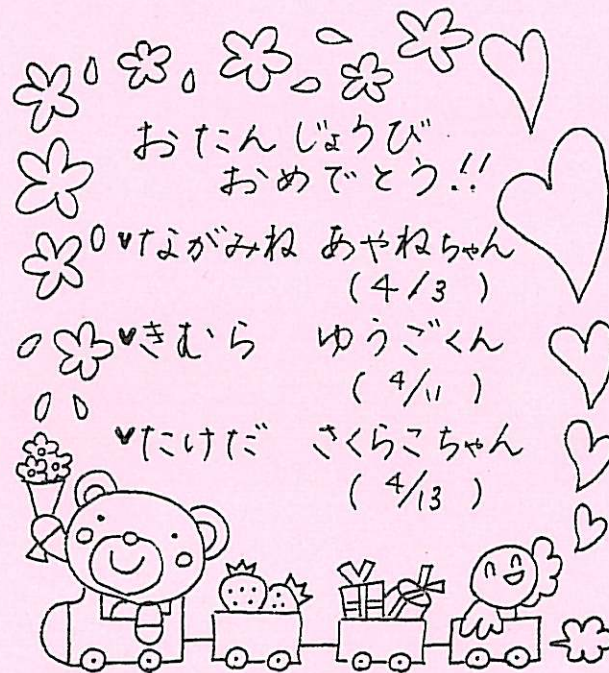 おたんじょうび
おめでとう!!
♥ながみね あやねちゃん
(4/3)
♥きむら ゆうごくん
(4/11)
♥たけだ さくらこちゃん
(4/13)